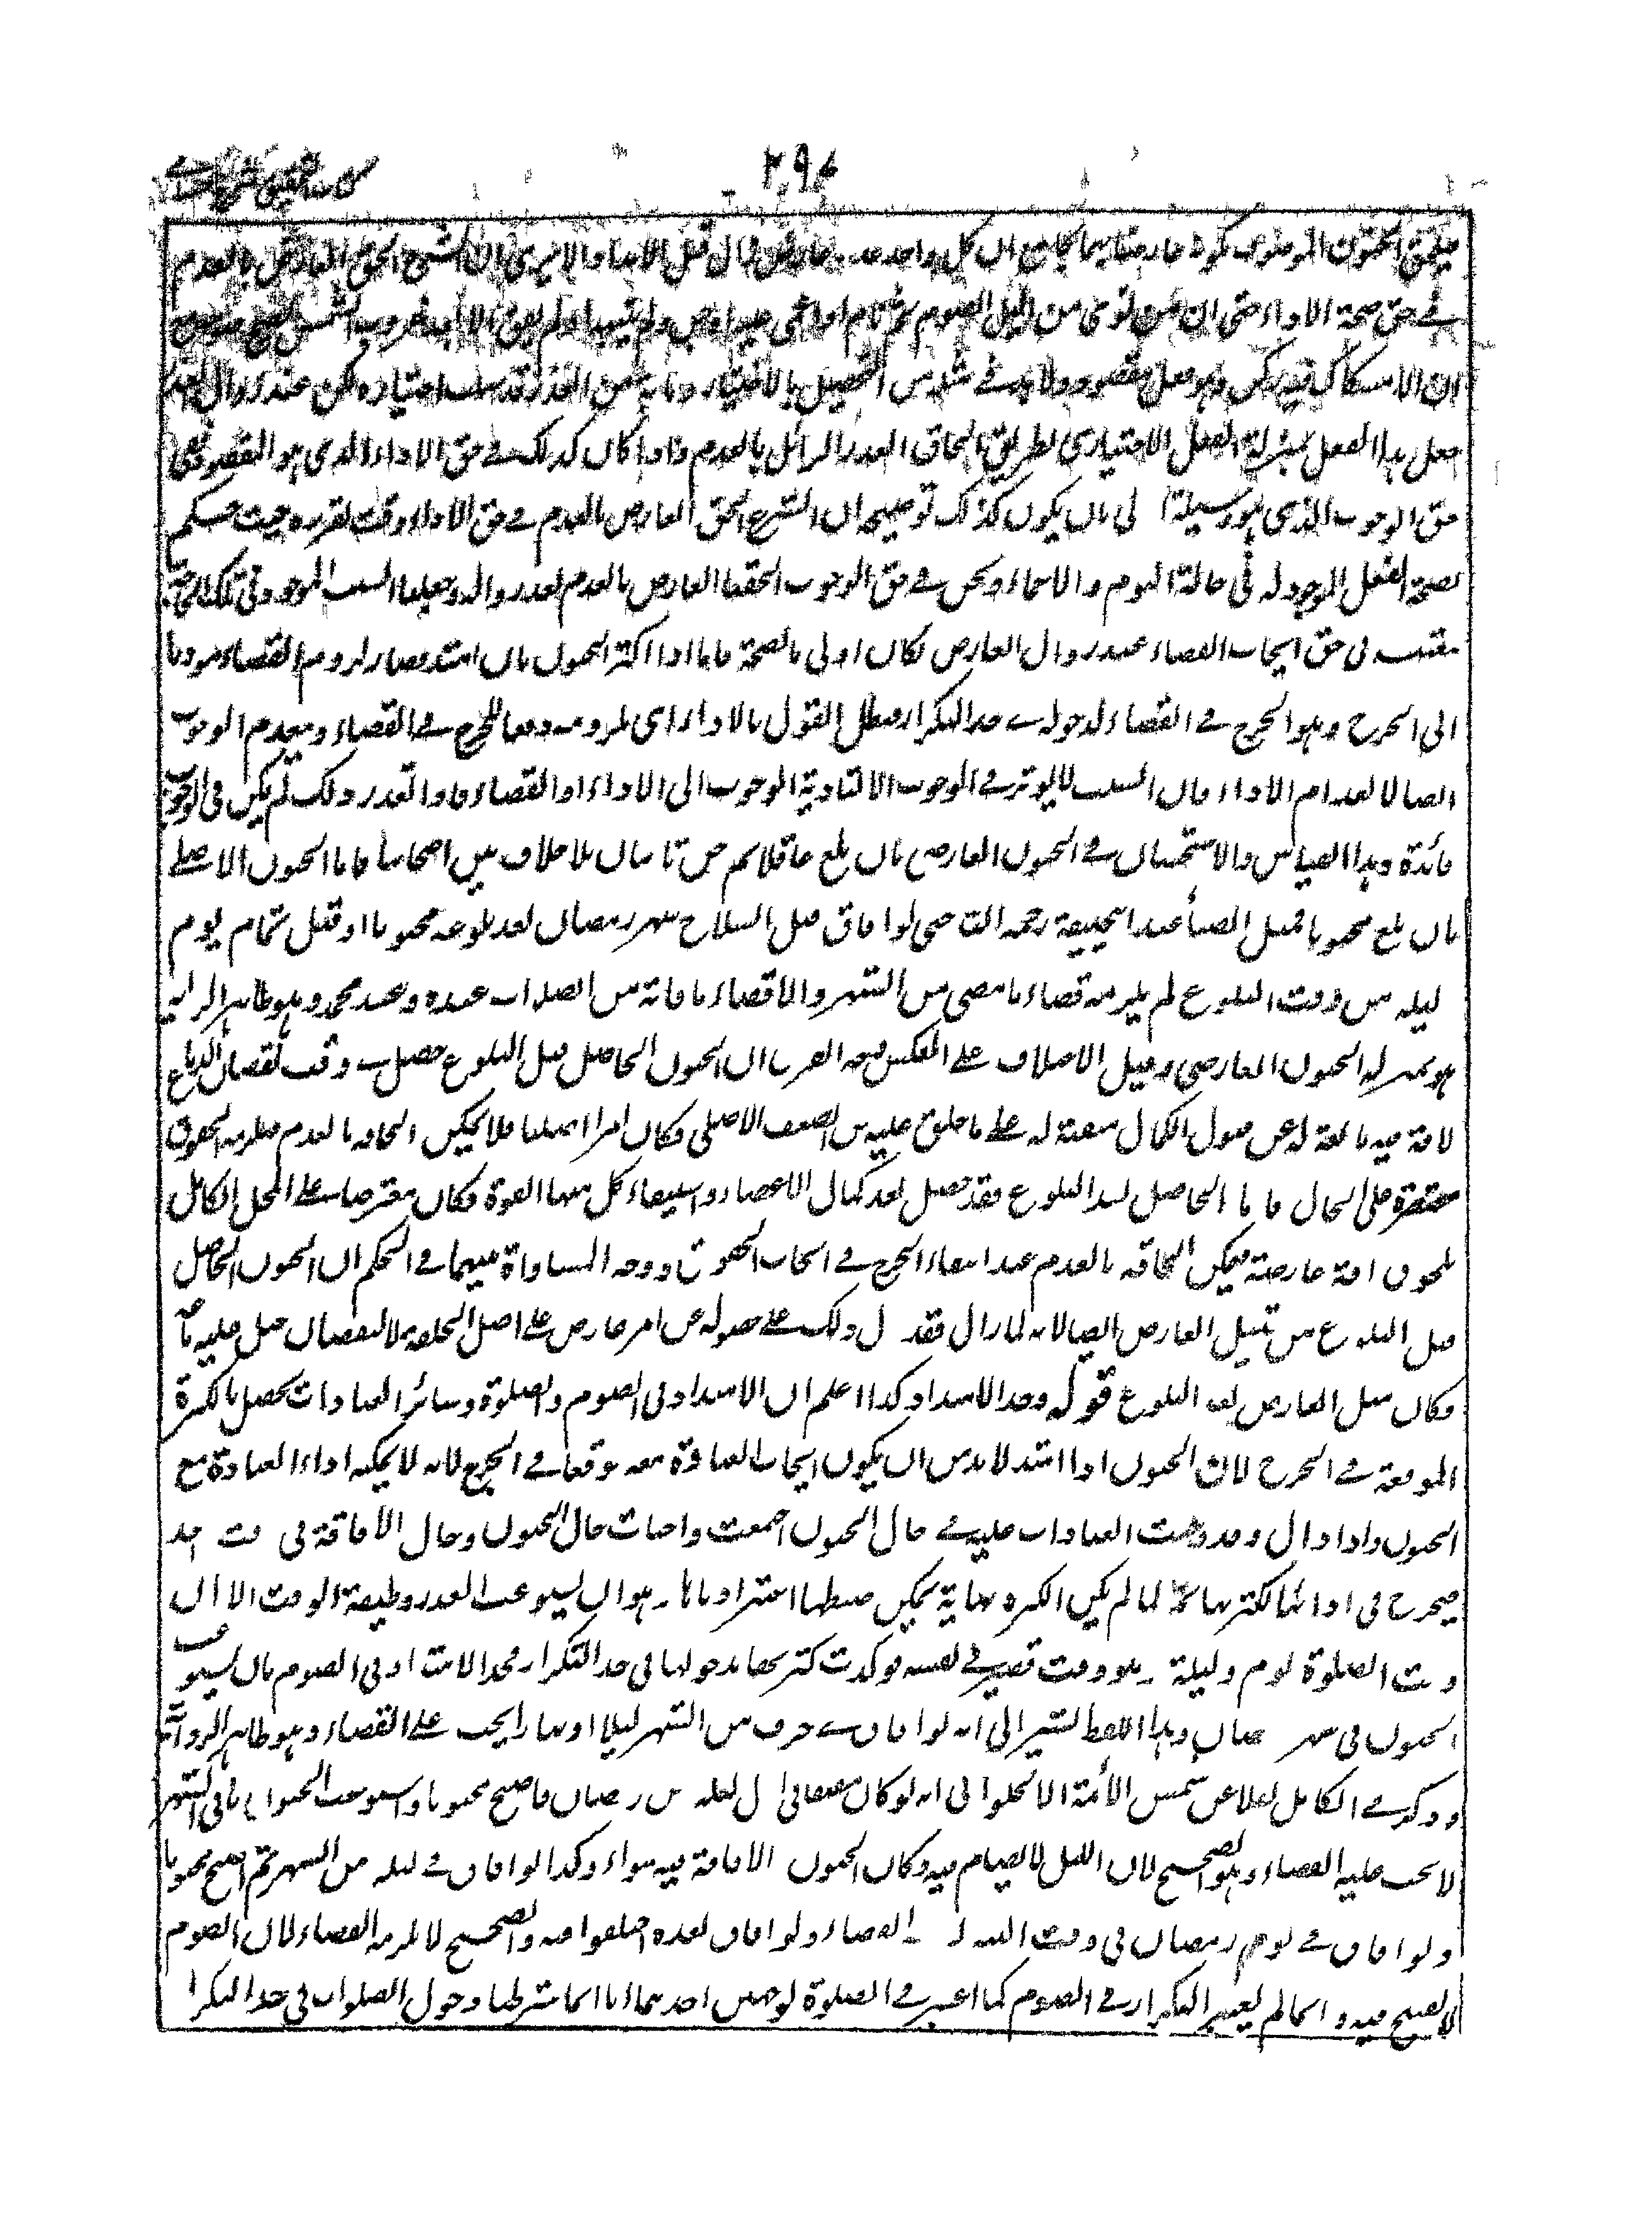 ٢٩٤
فيلحق الجنون الموصوف بكونه عارضا بهما بجامع ان كل واحد عارض زال قبل الامتداد الا يرى ان الشرع الحق العارض بالعدم
في حق صحة الاداء حتى ان من نوى من الليل الصوم ثم نام او اغمى عليه ولم يفق الا بعد غروب الشمس صح صومه
ان الامساك ركن وهو فعل مقصود ولا بد في مثله من التحصيل بالاختيار وقد سلب اختياره لكن عند زوال العذر
جعل هذا الفعل بمنزلة الفعل الاختياري بطريق الحاق العذر الزائل بالعدم واذا كان كذلك في حق الاداء الذي هو المقصود ففي
حق الوجوب الذي هو وسيلة اولى بان يكون كذلك توضيحه ان الشرع الحق العارض بالعدم في حق الاداء وقت تقرره حيث حكم
بصحة الفعل الموجود له في حالة النوم والاغماء ونحن في حق الوجوب الحقنا العارض بالعدم بعد زواله وجعلنا السبب الموجود في تلك الحالة
معتبرا في حق ايجاب القضاء عند زوال العارض فكان اولى بالصحة فاما اذا كثر الجنون بان امتد فصار لزوم القضاء مؤديا
الى الحرج وهو الحرج في القضاء لدخوله في حد التكرار فبطل القول بالاداء اي بلزومه دفعا للحرج في القضاء وينعدم الوجوب
ايضا لانعدام الاداء فان السبب لا يؤثر في الوجوب الا لتأدية الوجوب الى الاداء او القضاء فاذا تعذر ذلك لم يكن في الوجوب
فائدة وهذا القياس والاستحسان في الجنون العارضي بان بلغ عاقلا ثم جن ثابتان بلا خلاف بين اصحابنا فاما الجنون الاصلي
بان بلغ مجنونا فمثل الصبا عند ابي حنيفة رحمه الله حتى لو افاق قبل انسلاخ شهر رمضان بعد بلوغه مجنونا او قبل تمام يوم
وليلة من وقت البلوغ لم يلزمه قضاء ما مضى من الشهر ولا قضاء ما فاته من الصلوات عنده وعند محمد وهو ظاهر الرواية
هو بمنزلة الجنون العارضي وقيل الاختلاف على العكس فيه الفرق ان الجنون الحاصل قبل البلوغ حصل في وقت نقصان الدماغ
لآفة فيه مانعة له عن قبول الكمال مبقية له على ما خلق عليه من الضعف الاصلي فكان امرا اصليا فلا يمكن الحاقه بالعدم فيلزمه الحقوق
مقتصرة على الحال فاما الحاصل بعد البلوغ فقد حصل بعد كمال الاعضاء واستيفاء كل منها القوة فكان معترضا على المحل الكامل
بلحوق آفة عارضة فيمكن الحاقه بالعدم عند انتفاء الحرج في ايجاب الحقوق ووجه المساواة بينهما في الحكم ان الجنون الحاصل
قبل البلوغ من قبيل العارض ايضا لانه لما زال فقد دل ذلك على حصوله عن امر عارض على اصل الخلقة لا لنقصان جبل عليه دماغه
فكان مثل العارض بعد البلوغ قوله وحد الامتداد كذا اعلم ان الامتداد في الصوم والصلوة وسائر العبادات يحصل بالكثرة
الموقعة في الحرج لان الجنون اذا امتد لا بد من ان يكون ايجاب العبادة معه موقعا في الحرج لانه لا يمكنه اداء العبادة مع
الجنون واذا زال وقد وجبت العبادات عليه في حال الجنون اجتمعت واجبات حال الجنون وحال الافاقة في وقت واحد
فيحرج في ادائها لكثرتها ثم لما لم يكن للكثرة نهاية يمكن ضبطها اعتبر ادناها وهو ان يستوعب العذر وظيفة الوقت الا ان
وقت الصلوة يوم وليلة وهو وقت قصير في نفسه فوكدت كثرتها بدخولها في حد التكرار فحد الامتداد في الصوم بان يستوعب
الجنون في شهر رمضان وهذا اللفظ يشير الى انه لو افاق في جزء من الشهر ليلا او نهارا يجب عليه القضاء وهو ظاهر الرواية
وذكر في الكامل نقلا عن شمس الأئمة الحلوائي انه لو كان مفيقا في اول ليلة من رمضان فاصبح مجنونا واستوعب الجنون باقي الشهر
لا يجب عليه القضاء وهو الصحيح لان الليل لا يصام فيه وكان الجنون والافاقة فيه سواء وكذا لو افاق في ليلة من الشهر ثم اصبح مجنونا
ولو افاق في يوم رمضان في وقت النية لزمه القضاء ولو افاق بعده اختلفوا فيه والصحيح لا يلزمه القضاء لان الصوم
لا يصح فيه وانما لم يعتبر التكرار في الصوم كما اعتبر في الصلوة لوجهين احدهما انا انما شرطنا دخول الصلوات في حد التكرار